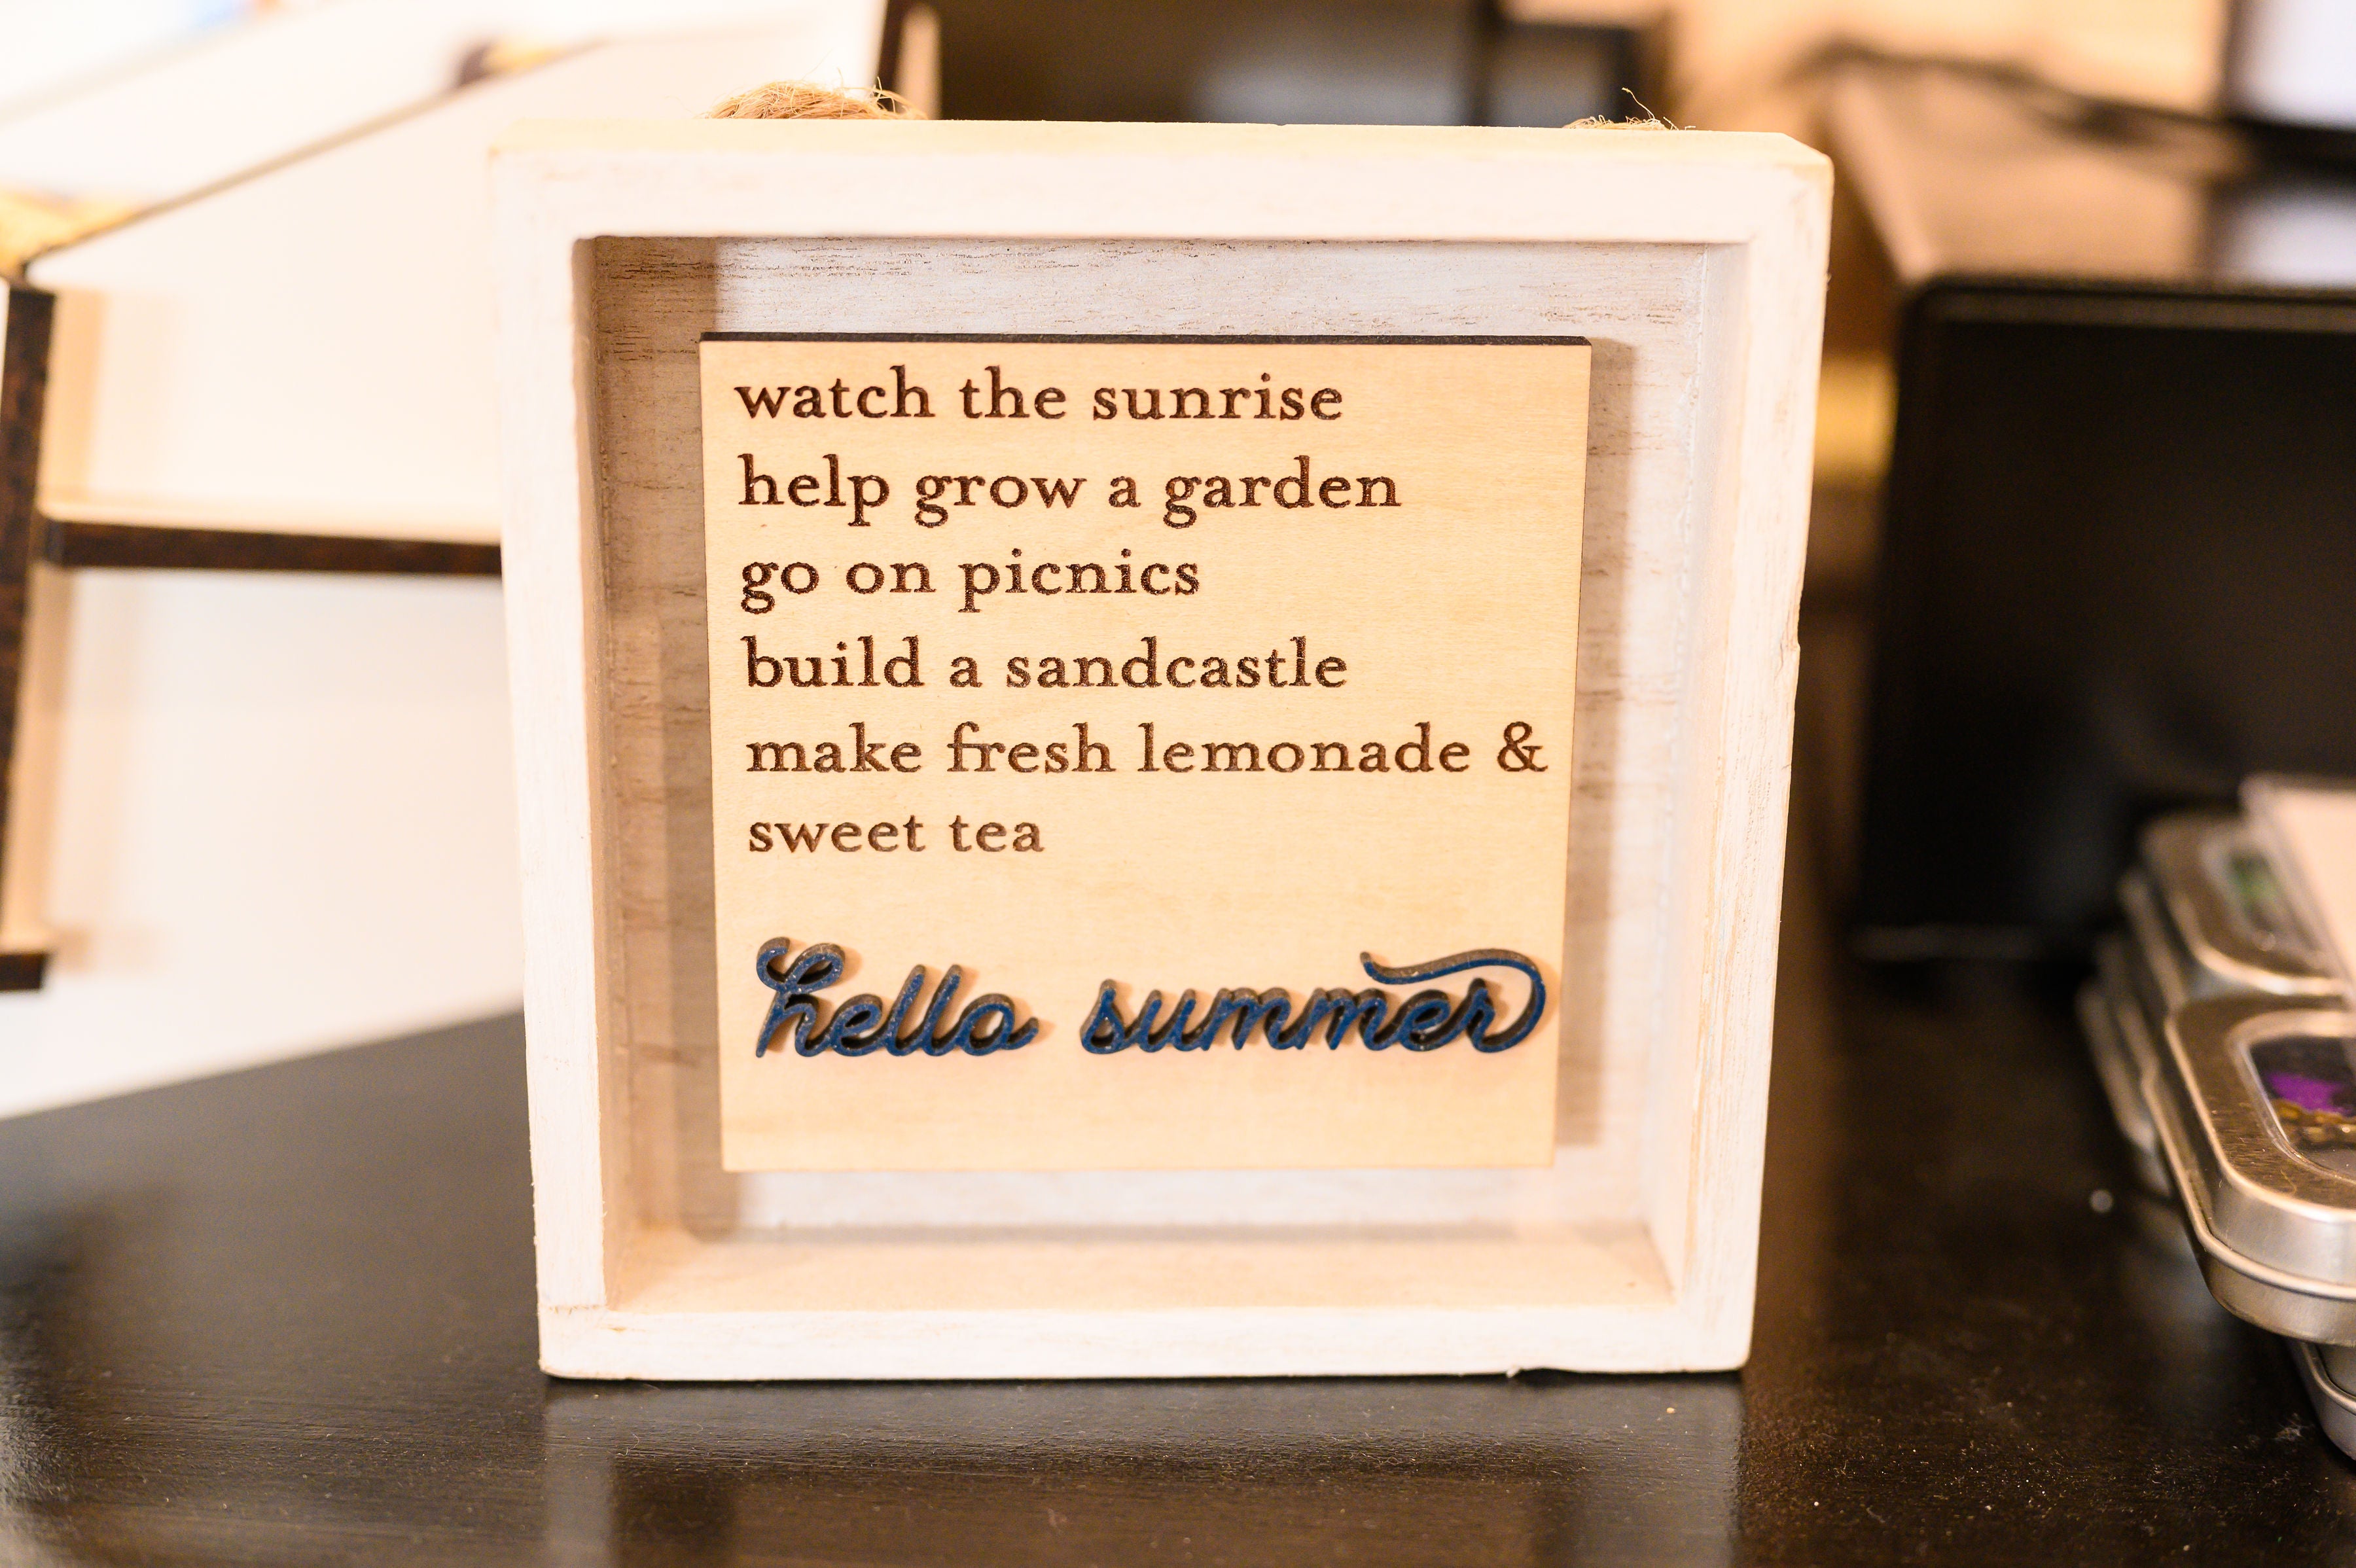 watch the sunrise
help grow a garden
go on picnics
build a sandcastle
make fresh lemonade &
sweet tea
hello summer